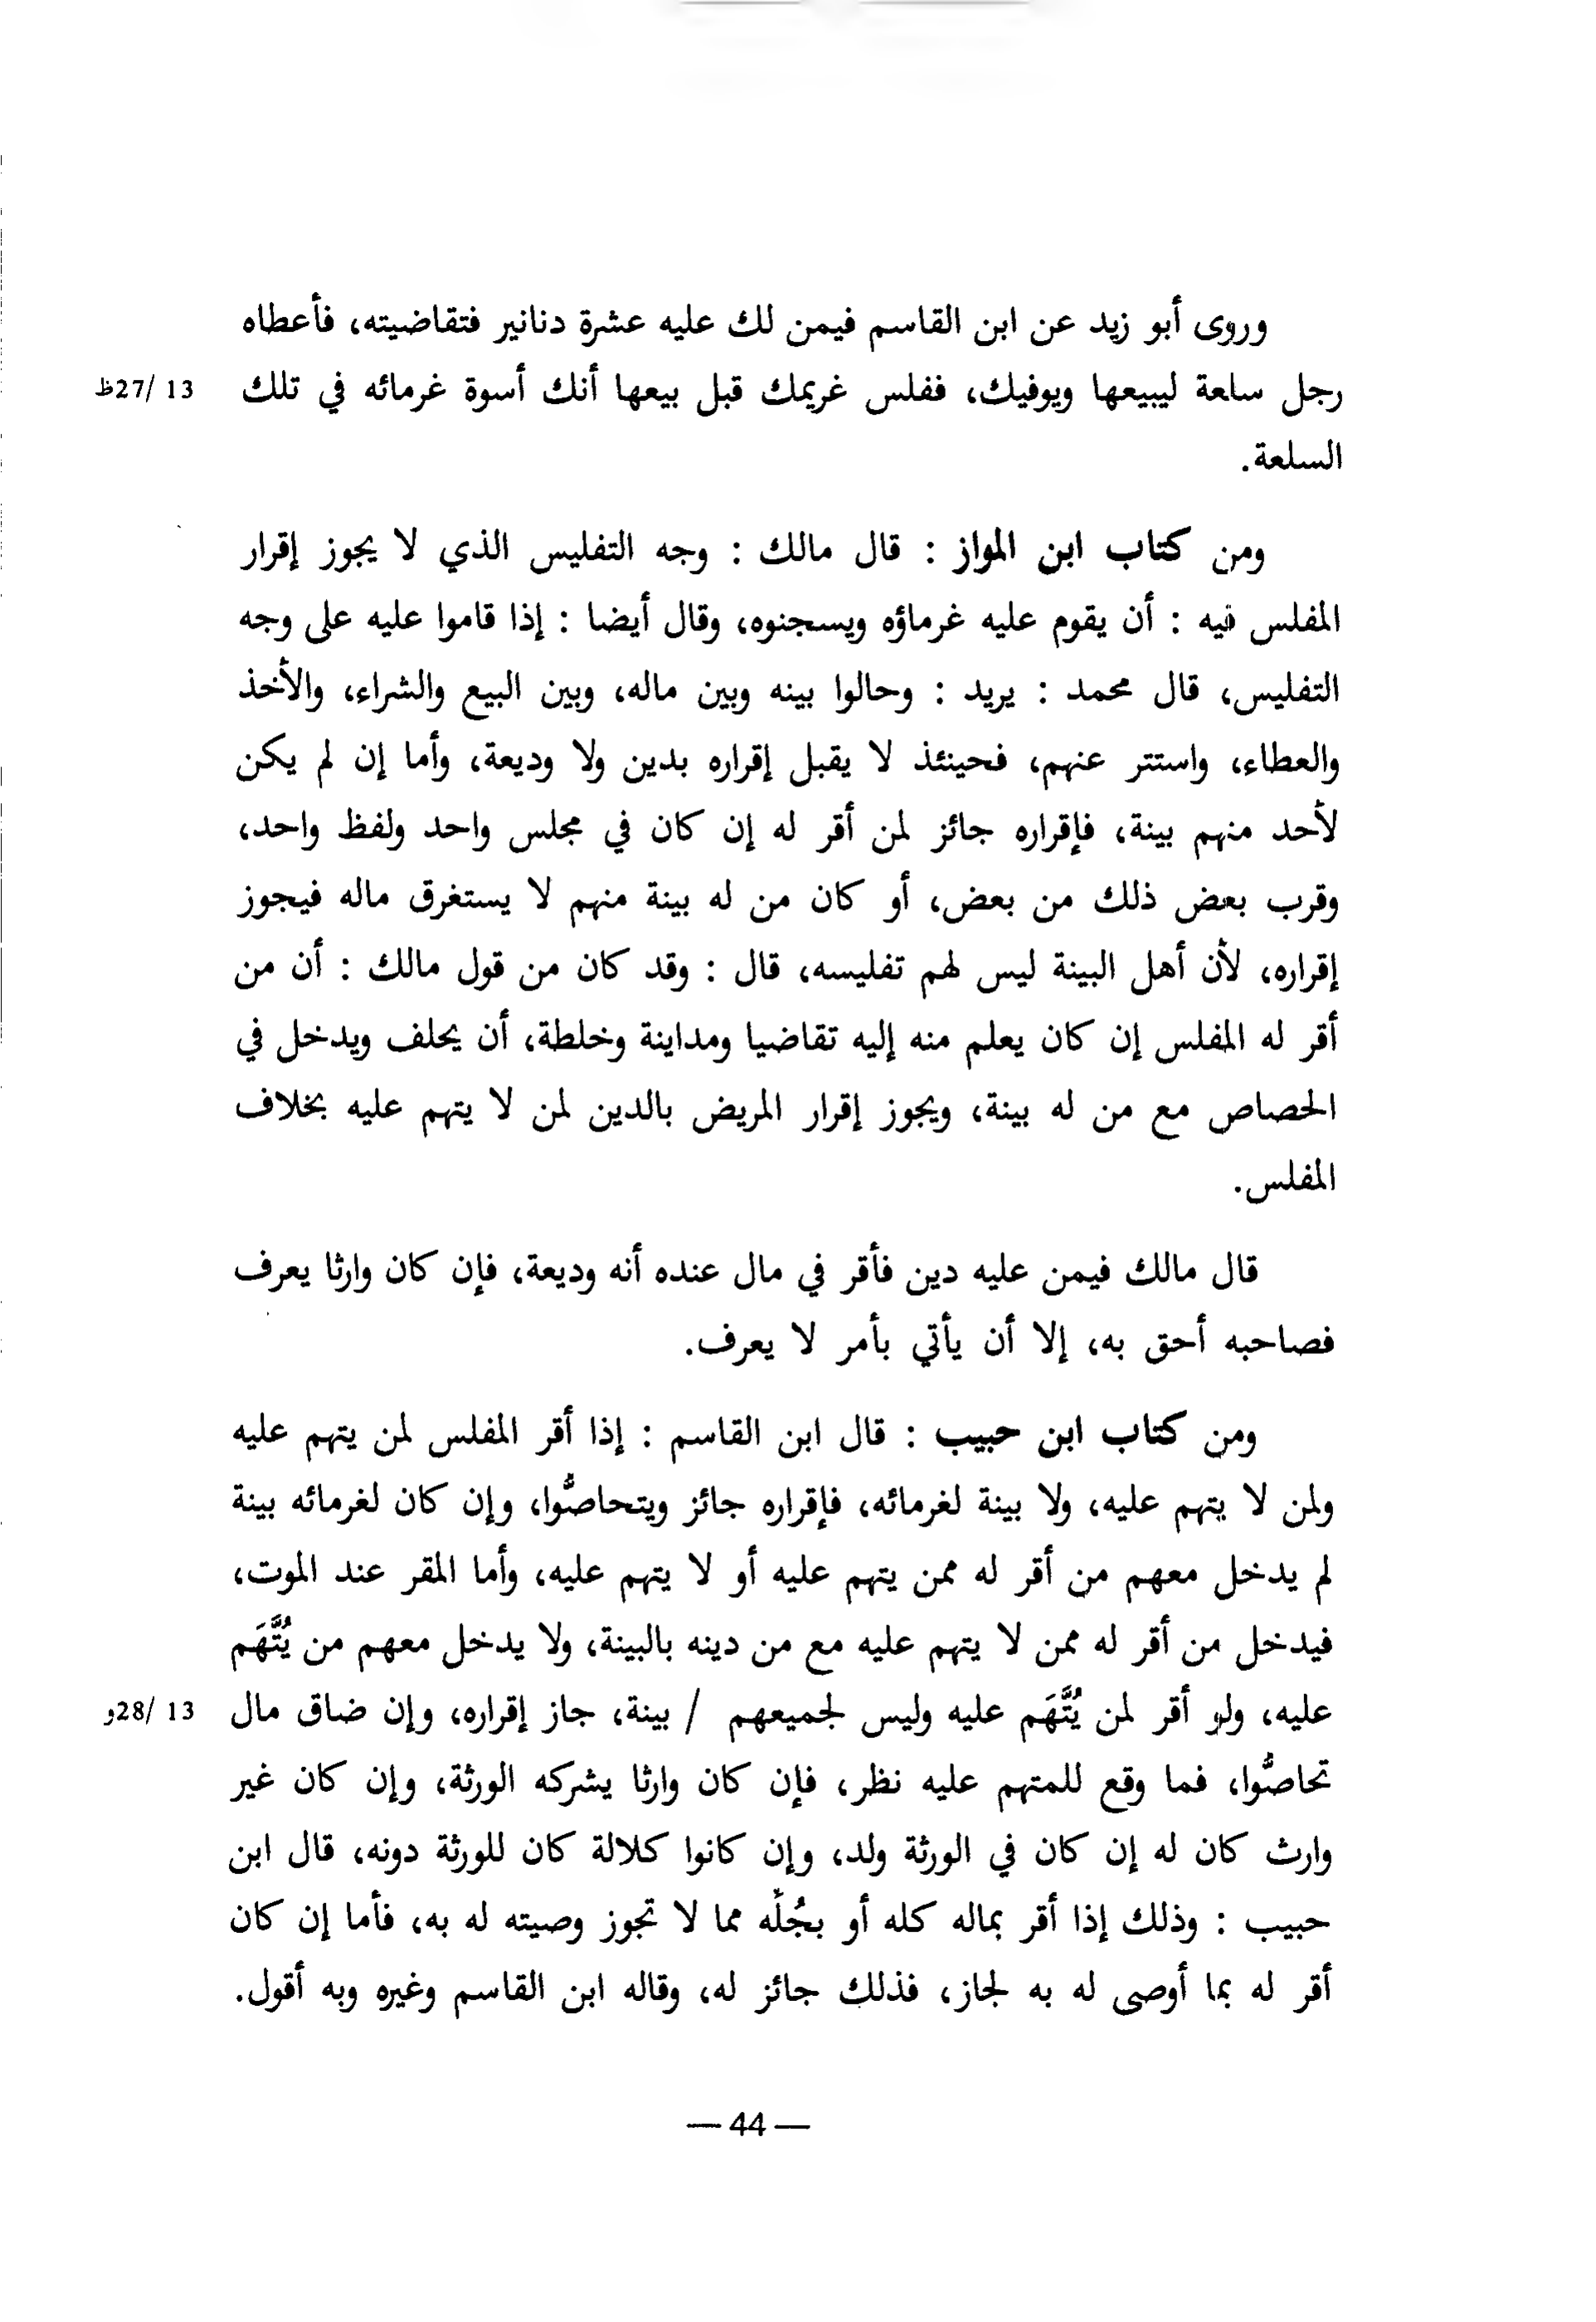 وروى أبو زيد عن ابن القاسم فيمن لك عليه عشرة دنانير فتقاضيته، فأعطاه
رجل سلعة ليبيعها ويوفيك، ففلس غريمك قبل بيعها أنك أسوة غرمائه في تلك
13 /27ظ
السلعة.
ومن كتاب ابن المواز : قال مالك : وجه التفليس الذي لا يجوز إقرار
المفلس فيه : أن يقوم عليه غرماؤه ويسجنوه، وقال أيضا : إذا قاموا عليه على وجه
التفليس، قال محمد : يريد : وحالوا بينه وبين ماله، وبين البيع والشراء، والأخذ
والعطاء، واستتر عنهم، فحينئذ لا يقبل إقراره بدين ولا وديعة، وأما إن لم يكن
لأحد منهم بينة، فإقراره جائز لمن أقر له إن كان في مجلس واحد ولفظ واحد،
وقرب بعض ذلك من بعض، أو كان من له بينة منهم لا يستغرق ماله فيجوز
إقراره، لأن أهل البينة ليس لهم تفليسه، قال : وقد كان من قول مالك : أن من
أقر له المفلس إن كان يعلم منه إليه تقاضيا ومداينة وخلطة، أن يحلف ويدخل في
الحصاص مع من له بينة، ويجوز إقرار المريض بالدين لمن لا يتهم عليه بخلاف
المفلس.
قال مالك فيمن عليه دين فأقر في مال عنده أنه وديعة، فإن كان وارثا يعرف
فصاحبه أحق به، إلا أن يأتي بأمر لا يعرف.
ومن كتاب ابن حبيب : قال ابن القاسم : إذا أقر المفلس لمن يتهم عليه
ولمن لا يتهم عليه، ولا بينة لغرمائه، فإقراره جائز ويتحاصُّوا، وإن كان لغرمائه بينة
لم يدخل معهم من أقر له ممن يتهم عليه أو لا يتهم عليه، وأما المقر عند الموت،
فيدخل من أقر له ممن لا يتهم عليه مع من دينه بالبينة، ولا يدخل معهم من يُتَّهَم
عليه، ولو أقر لمن يُتَّهَم عليه وليس لجميعهم / بينة، جاز إقراره، وإن ضاق مال
13 /28و
تحاصُّوا، فما وقع للمتهم عليه نظر، فإن كان وارثا يشركه الورثة، وإن كان غير
وارث كان له إن كان في الورثة ولد، وإن كانوا كلالة كان للورثة دونه، قال ابن
حبيب : وذلك إذا أقر بماله كله أو بجُلِّه مما لا تجوز وصيته له به، فأما إن كان
أقر له بما أوصى له به لجاز، فذلك جائز له، وقاله ابن القاسم وغيره وبه أقول.
— 44 —